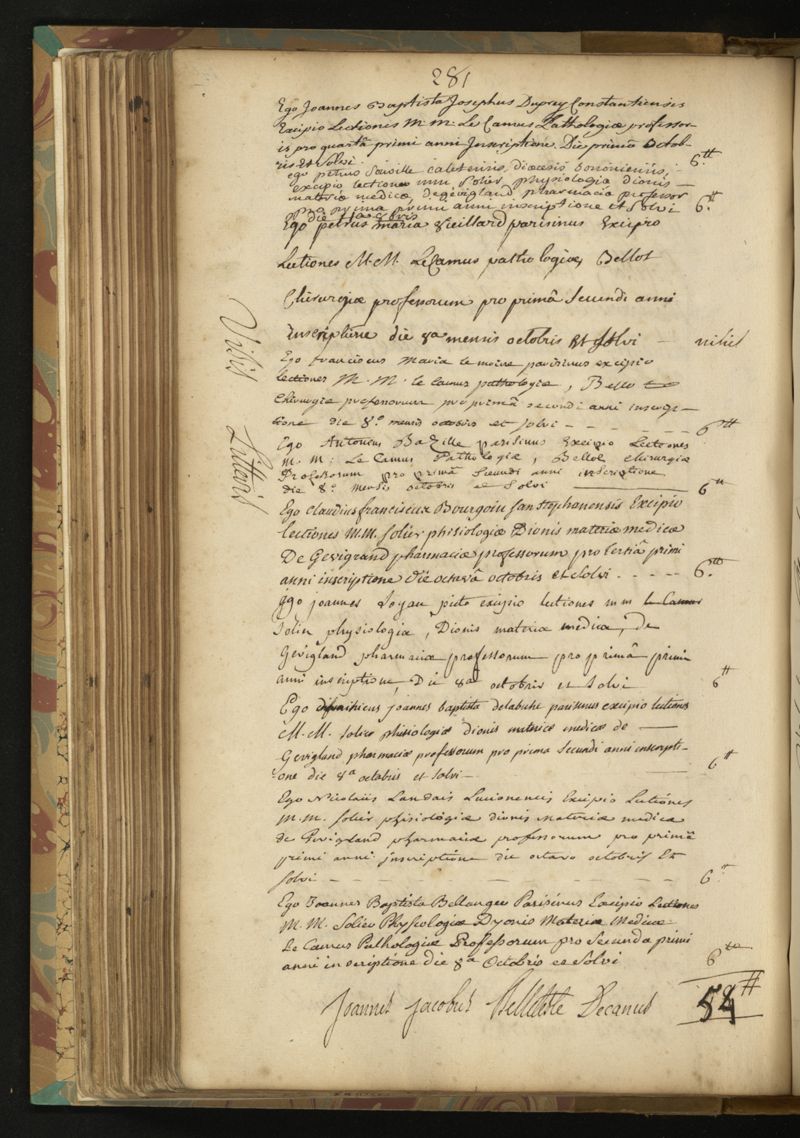 281
Ego Joannes Baptista Josephus Duprey Constantiensis
Excipio Lectiones M. M. Le Camus Pathologiæ professor-
is pro quartâ primi anni Inscriptione. Die primâ octob-
ris Et Solvi 6.tt
ego petrus Sauville caletensis, diœcesis bononiensis,
excipio lectiones mm solier physiologia dionis
materiæ medicæ, degévigland pharmacia professor
pro prima primi anni inscriptione et Solvi 6.tt
die 1a octobris
Ego petrus maria Vieillard parisinus Excipio
Lectiones M. M. LeCamus pathologiæ, Bellot
Chirurgiæ professorum pro primâ Secundi anni
inscriptione die 8a mensis octobris Et Solvi - nihil
Visis Litteris
Ego franciscus Maria le moine parisinus excipio
lectiones M. M. le camus pathologiæ, Bello
Chirurgiæ professorum pro primâ secundi anni inscrip-
tione die 8.o mensis octobris et solvi - - - - - - 6tt
Ego Antonius Bazille parisinus Excipio Lectiones
m. m: Le Camus Pathologiæ, Bellot chirurgiæ
Professorum pro primâ Secundi anni inscriptione
die 8.o mensis octobris et Solvi 6tt
Ego Claudius franciscus Bourgoin Sanstephanensis Excipio
lectiones M.M. Solier phisiologiæ Dionis materiæ medicæ
De Gevigrand pharmaciæ professorum pro tertiâ primi
anni inscriptione die octavâ octobris et Solvi . - - - - 6.tt
Ego joannes Soyau picto excipio lectiones mm le Camus
Solier physiologia, Dionis materiæ medicæ, de
Gévigland pharmaciæ professorum pro primâ primi
anni inscriptione, Die 8a octobris et Solvi 6tt
Ego joannes baptista delabiche parisinus excipio lectiones
M. M. Solier phisiologiæ dionis materiæ medicæ de
Gevigland pharmaciæ professorum pro prima Secundi anni inscripti-
one die 8a octobris et solvi - 6tt
Ego Nicolaüs Landais Lucionensis Excipio Lectiones
M. M. Solier phisiologiæ dionis materiæ medicæ
de Gevigland pharmaciæ professorum pro primâ
primi anni inscriptione die octavo octobris Et
Solvi - - - - - - 6tt
Ego Joannes Baptista Bellanger Parisinus Excipio Lectiones
M. M. Solier Physologiæ Dyonis Materiæ Medicæ
Le Camus Pathologiæ Professorum pro Secunda primi
anni inscriptione die 8a Octobris et Solvi 6tt
Joannes Jacobus Belleteste Decanus 54tt